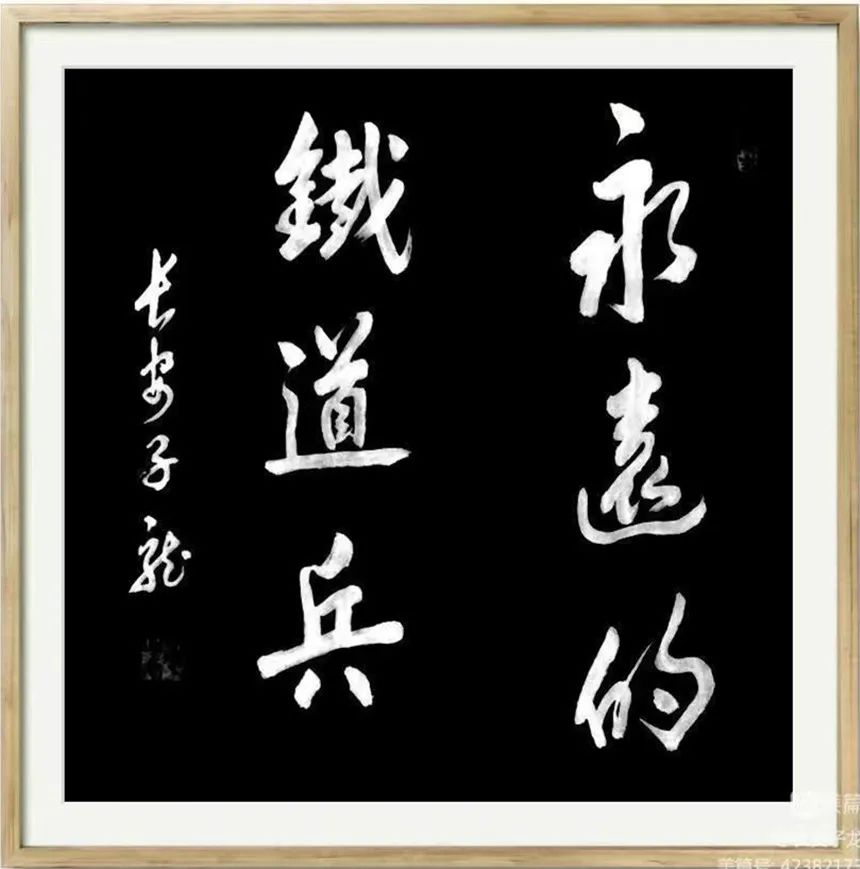 永遠的
鐵道兵
长安子龙
美篇
美篇号: 42382173